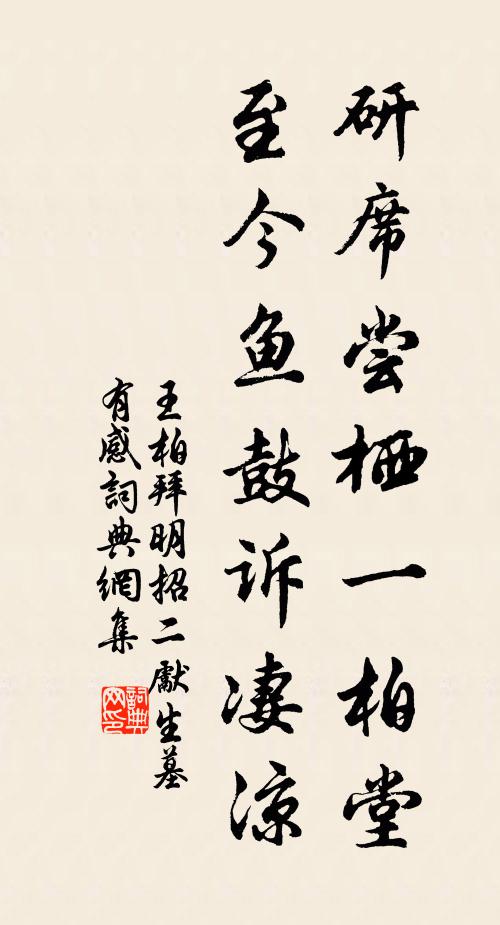 研席尝栖一柏堂
至今鱼鼓诉凄凉
王柏拜明招二獻生墓
有感詞典網集
詞典网印